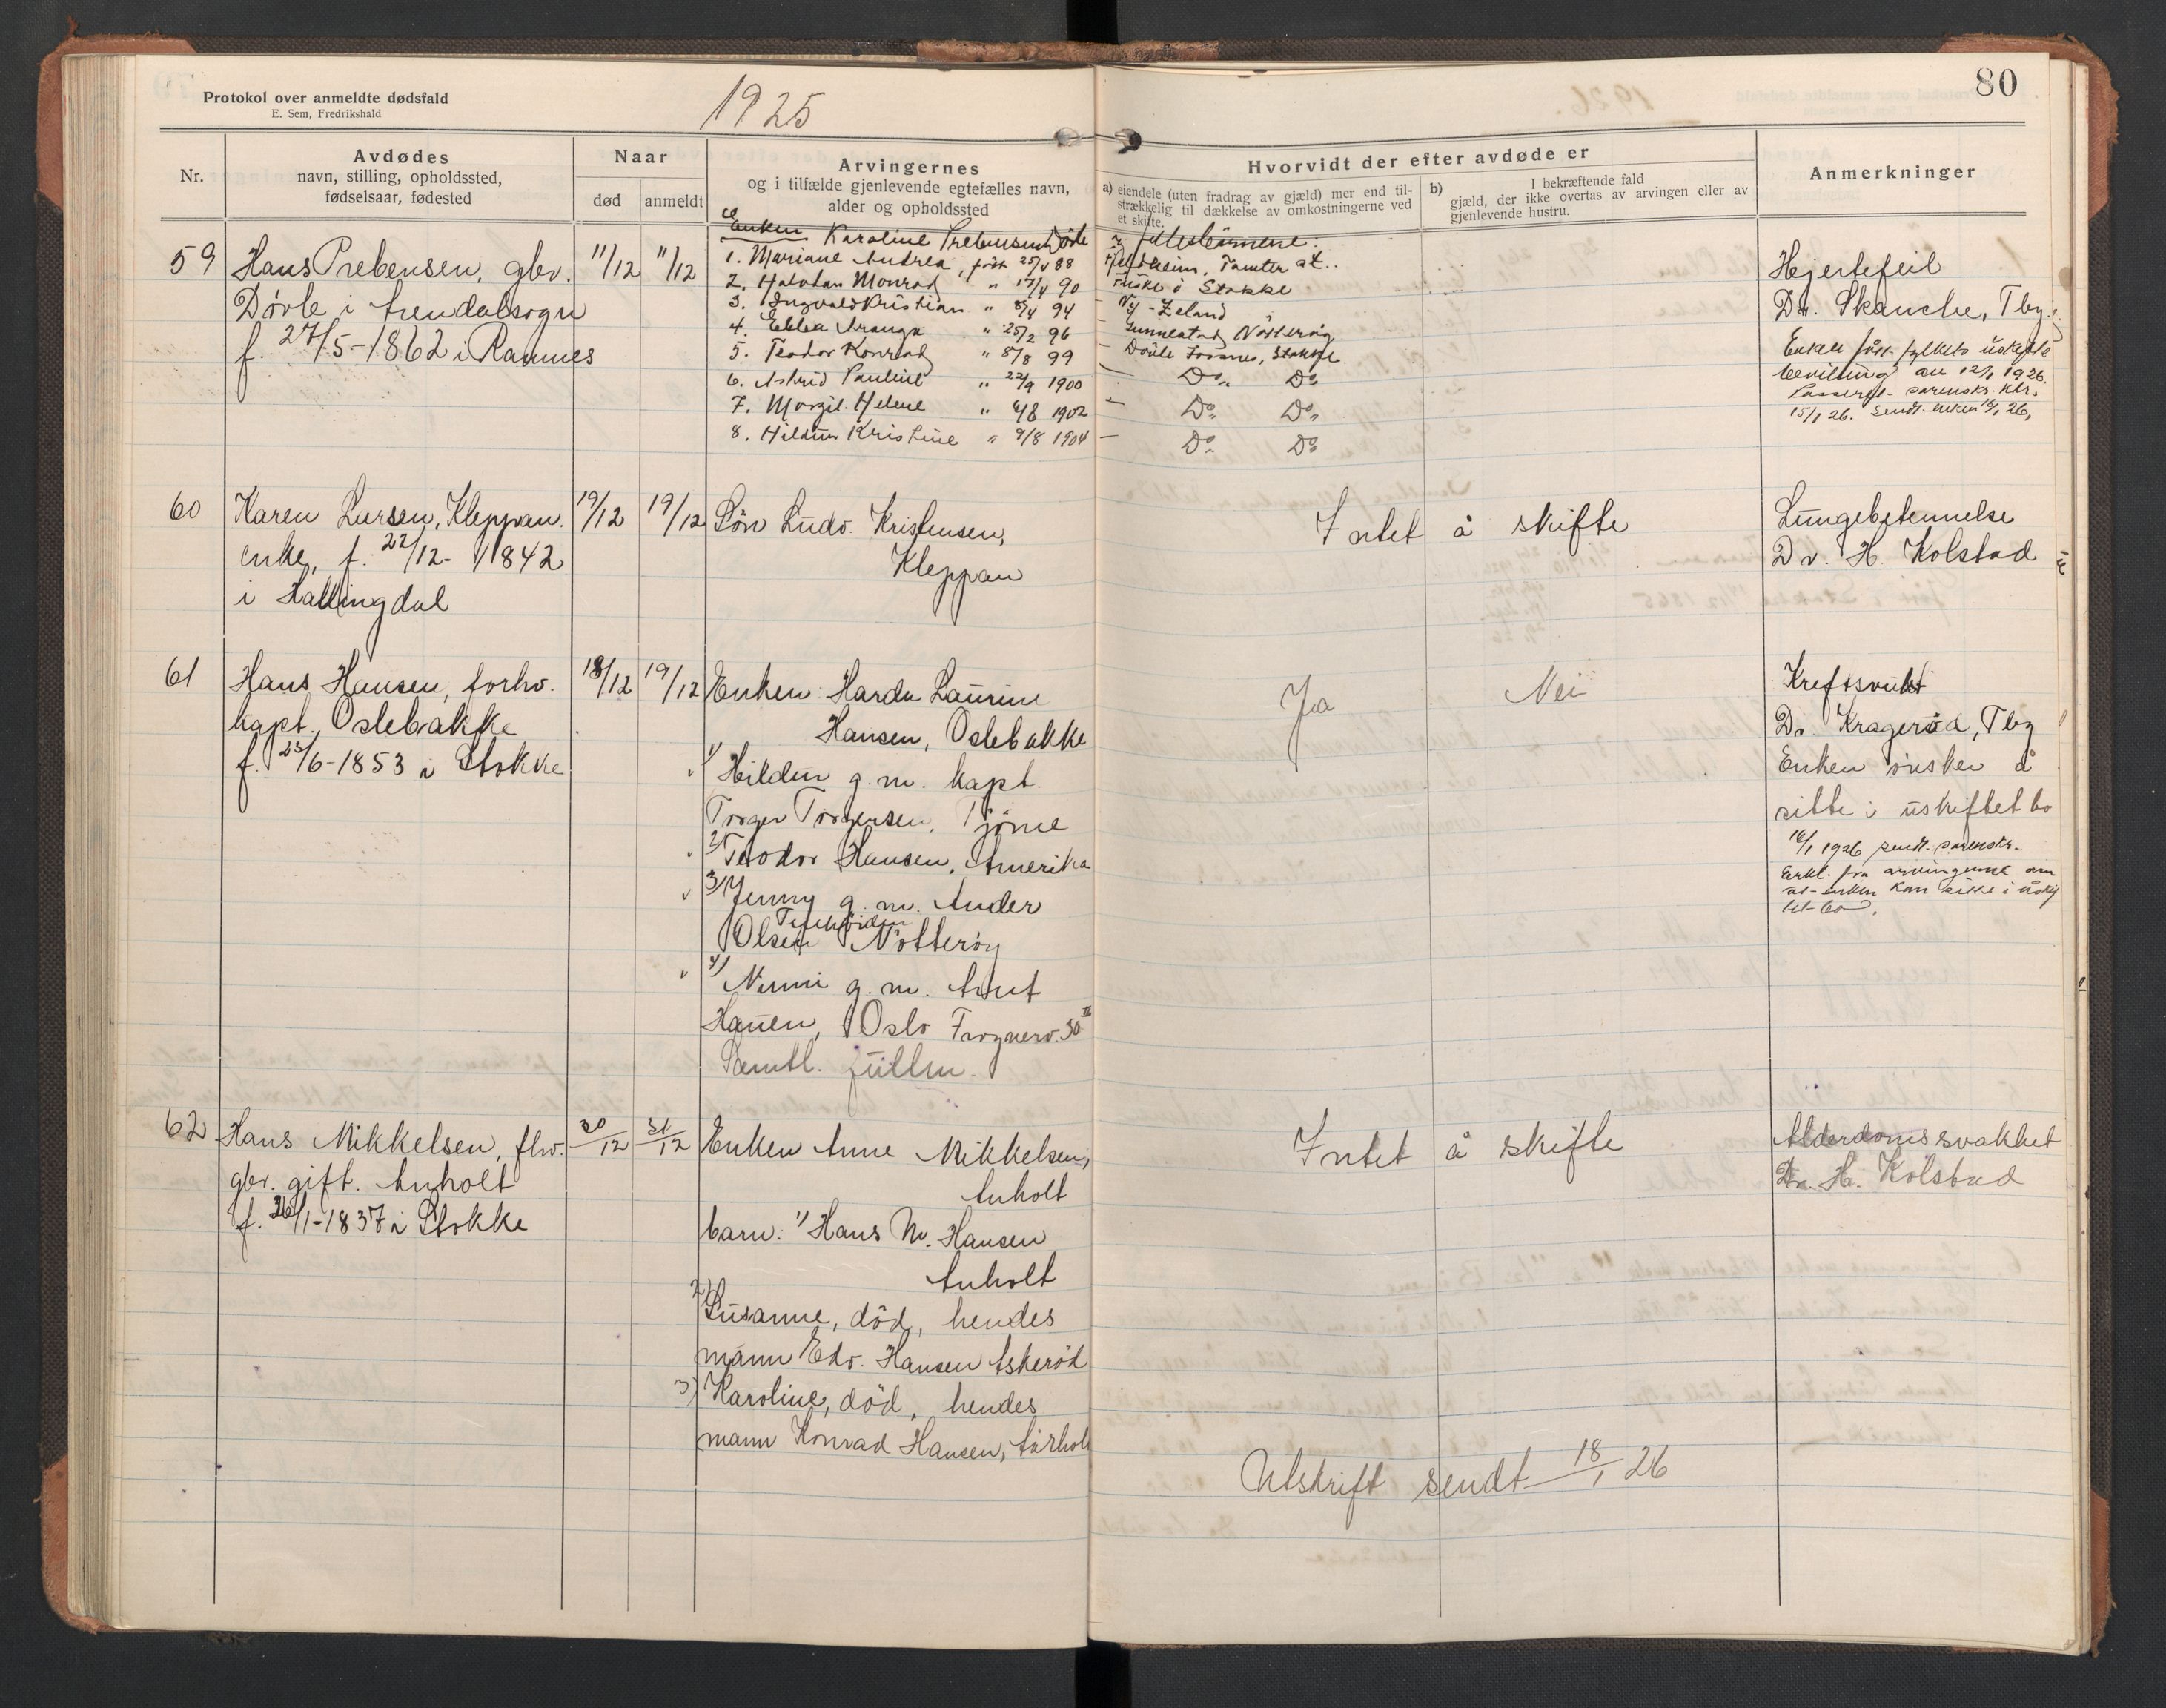 80
Protokol over anmeldte dødsfald
E. Sem, Fredrikshald
1925
Nr.
Avdødes
navn, stilling, opholdssted,
fødselsaar, fødested
Naar
død
anmeldt
Arvingernes
og i tilfælde gjenlevende egtefælles navn,
alder og opholdssted
Hvorvidt der efter avdøde er
a) eiendele (uten fradrag av gjæld) mer end til-
strækkelig til dækkelse av omkostningerne ved
et skifte.
b) I bekræftende fald
gjæld, der ikke overtas av arvingen eller av
gjenlevende hustru.
Anmerkninger
59
Hans Prebensen, gbr.
Døvle i Arendalsogn
f. 27/5-1862 i Ramnes
11/12
11/12
Enken Karoline Prebensen
1. Mariane Andrea, født 25/4 88
2. Halvdan Monrad " 17/4 90
3. Ingvald Kristian " 94
4. Ebba " 25/2 96
5. Teodor Konrad " 8/8 99
6. Astrid Pauline " 22/9 1900
7. Helene " 1902
8. Hildur Kristine " 9/8 1904
Fellesbarnene:
i Stokke
Ny-Zeland
Nøtterøy
Stokke
Do Do
Do Do
Do Do
Hjertefeil
Dr. Skanche, Tbg.
Enken fått fylkets uskifte
bevilling av 12/1 1926.
15/1 26. Sendt enken 26,
60
Karen Larsen, Kleppan.
enke, f. 22/12-1842
i Hallingdal
19/12
19/12
Søn Ludv. Kristensen,
Kleppan
Intet å skifte
Lungebetennelse
Dr. H. Kolstad
61
Hans Hansen, forhv.
kapt., Oslebakke
f. 23/6-1853 i Stokke
18/12
19/12
Enken: Harda Laurine
Hansen, Oslebakke
1) Hildur g.m. kapt.
Torger Torgersen, Tjøme
2) Teodor Hansen, Amerika
3) Jenny g.m. Ander
Olsen Nøtterøy
4) Nanni g.m. Arnt
Hauen, Oslo Frognerv. 30 II
Samtl. fullm.
Ja
Nei
Kreftsvulst
Dr. Kragerød, Tbg
Enken ønsker å
sitte i uskiftet bo
16/1 1926 sendt sorenskr.
Erkl. fra arvingerne om
at enken kan sitte i uskif
tet bo.
62
Hans Mikkelsen, fhv.
gbr. gift. Anholt
f. 26/1-1837 i Stokke
30/12
31/12
Enken Anne Mikkelsen,
Anholt
barn: 1) Hans M. Hansen
Anholt
2) Susanne, død, hendes
mann Edv. Hansen Askerød
3) Karoline, død, hendes
mann Konrad Hansen,
Intet å skifte
Alderdomssvakhet
Dr. H. Kolstad
Utskrift sendt 18/1 26